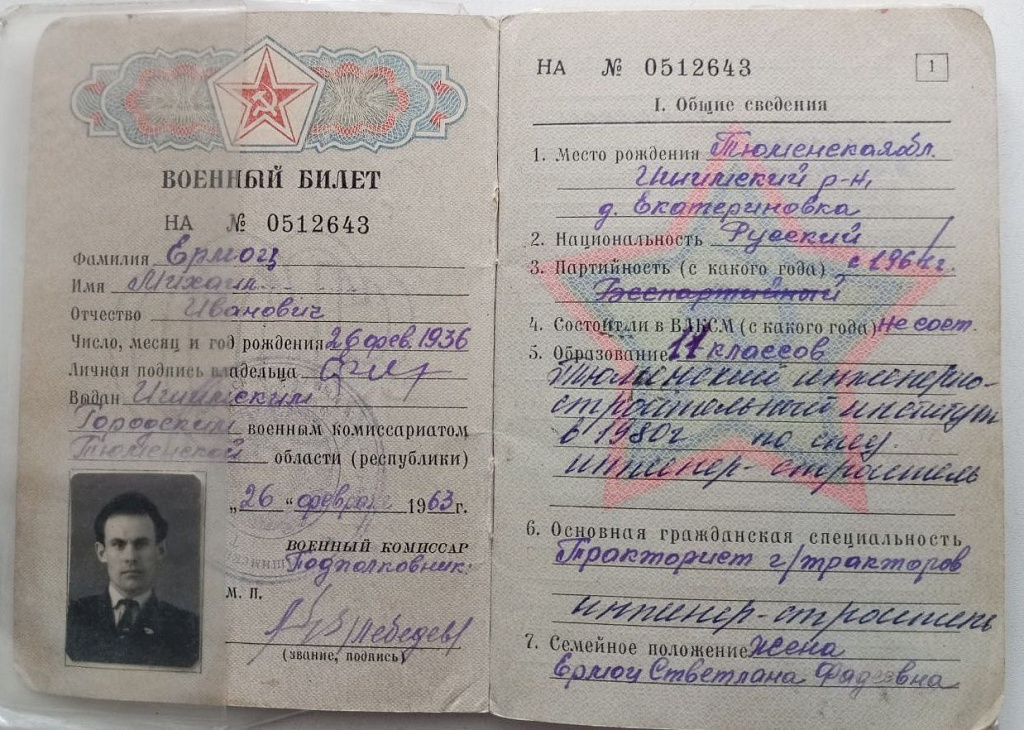 ВОЕННЫЙ БИЛЕТ
НА № 0512643
Фамилия Ермоц
Имя Михаил
Отчество Иванович
Число, месяц и год рождения 26 фев. 1936
Личная подпись владельца
Выдан Ишимским
Городским военным комиссариатом
Тюменской области (республики)
„26“ февраля 1963 г.
ВОЕННЫЙ КОМИССАР
Подполковник
М. П.
Лебедев
(звание, подпись)
НА № 0512643
1
I. Общие сведения
1. Место рождения Тюменская обл.
Ишимский р-н,
д. Екатериновка
2. Национальность Русский
3. Партийность (с какого года) с 1964 г.
Беспартийный
4. Состоит ли в ВЛКСМ (с какого года) Не сост.
5. Образование 11 классов
Тюменский инженерно-
строительный институт
в 1980г по спец.
инженер-строитель
6. Основная гражданская специальность
Тракторист г/тракторов
инженер-строитель
7. Семейное положение Жена
Ермоц Стветлана Фадеевна